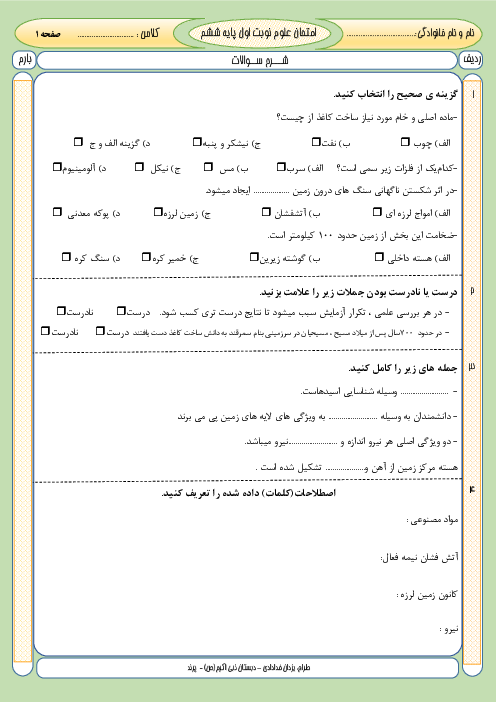 نام و نام خانوادگی: .......................... امتحان علوم نوبت اول پایه ششم کلاس : ...................... صفحه ۱
ردیف شــرح ســوالات بارم
۱ گزینه ی صحیح را انتخاب کنید.
-ماده اصلی و خام مورد نیاز ساخت کاغذ از چیست؟
الف) چوب ب) نفت ج) نیشکر و پنبه د) گزینه الف و ج
-کدام‌یک از فلزات زیر سمی است؟ الف) سرب ب) مس ج) نیکل د) آلومینیوم
-در اثر شکستن ناگهانی سنگ های درون زمین ................ ایجاد میشود.
الف) امواج لرزه ای ب) آتشفشان ج) زمین لرزه د) پوکه معدنی
-ضخامت این بخش از زمین حدود ۱۰۰ کیلومتر است.
الف) هسته داخلی ب) گوشته زیرین ج) خمیر کره د) سنگ کره
۲ درست یا نادرست بودن جملات زیر را علامت بزنید.
- در هر بررسی علمی ، تکرار آزمایش سبب میشود تا نتایج درست تری کسب شود. درست نادرست
- در حدود ۷۰۰سال پس از میلاد مسیح ، مسیحیان در سرزمینی بنام سمرقند به دانش ساخت کاغذ دست یافتند. درست نادرست
۳ جمله های زیر را کامل کنید.
- ...................... وسیله شناسایی اسیدهاست.
- دانشمندان به وسیله ...................... به ویژگی های لایه های زمین پی می برند
- دو ویژگی اصلی هر نیرو اندازه و ......................نیرو میباشد.
هسته مرکز زمین از آهن و.................. تشکیل شده است .
۴ اصطلاحات(کلمات) داده شده را تعریف کنید.
مواد مصنوعی :
آتش فشان نیمه فعال:
کانون زمین لرزه :
نیرو :
طراح: یزدان خدادادی - دبستان نبی اکرم (ص) - پرند